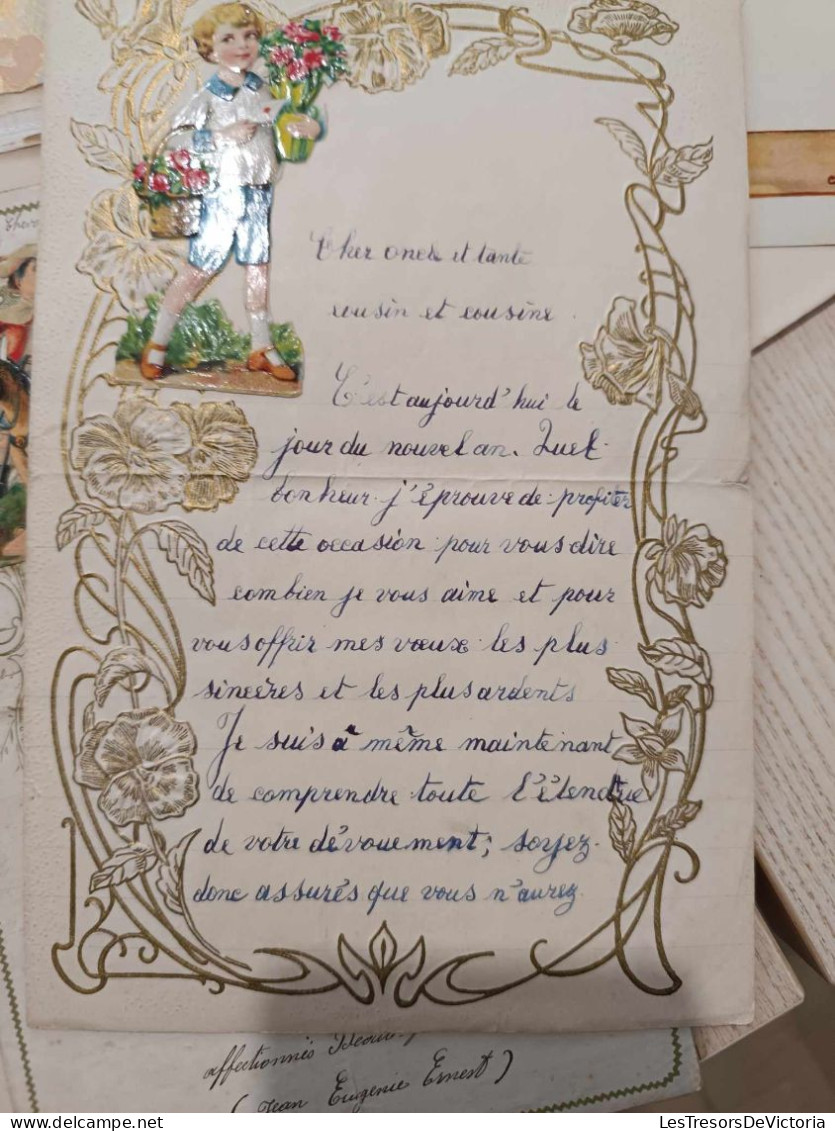 Cher oncle et tante
cousin et cousine.
C'est aujourd'hui le
jour du nouvel an. Quel
bonheur j'éprouve de profiter
de cette occasion pour vous dire
combien je vous aime et pour
vous offrir mes vœux les plus
sincères et les plus ardents
Je suis à même maintenant
de comprendre toute l'étendue
de votre dévouement; soyez
donc assurés que vous n'aurez
affectionnés
(Jean Eugenie Ernest)
LesTresorsDeVictoria